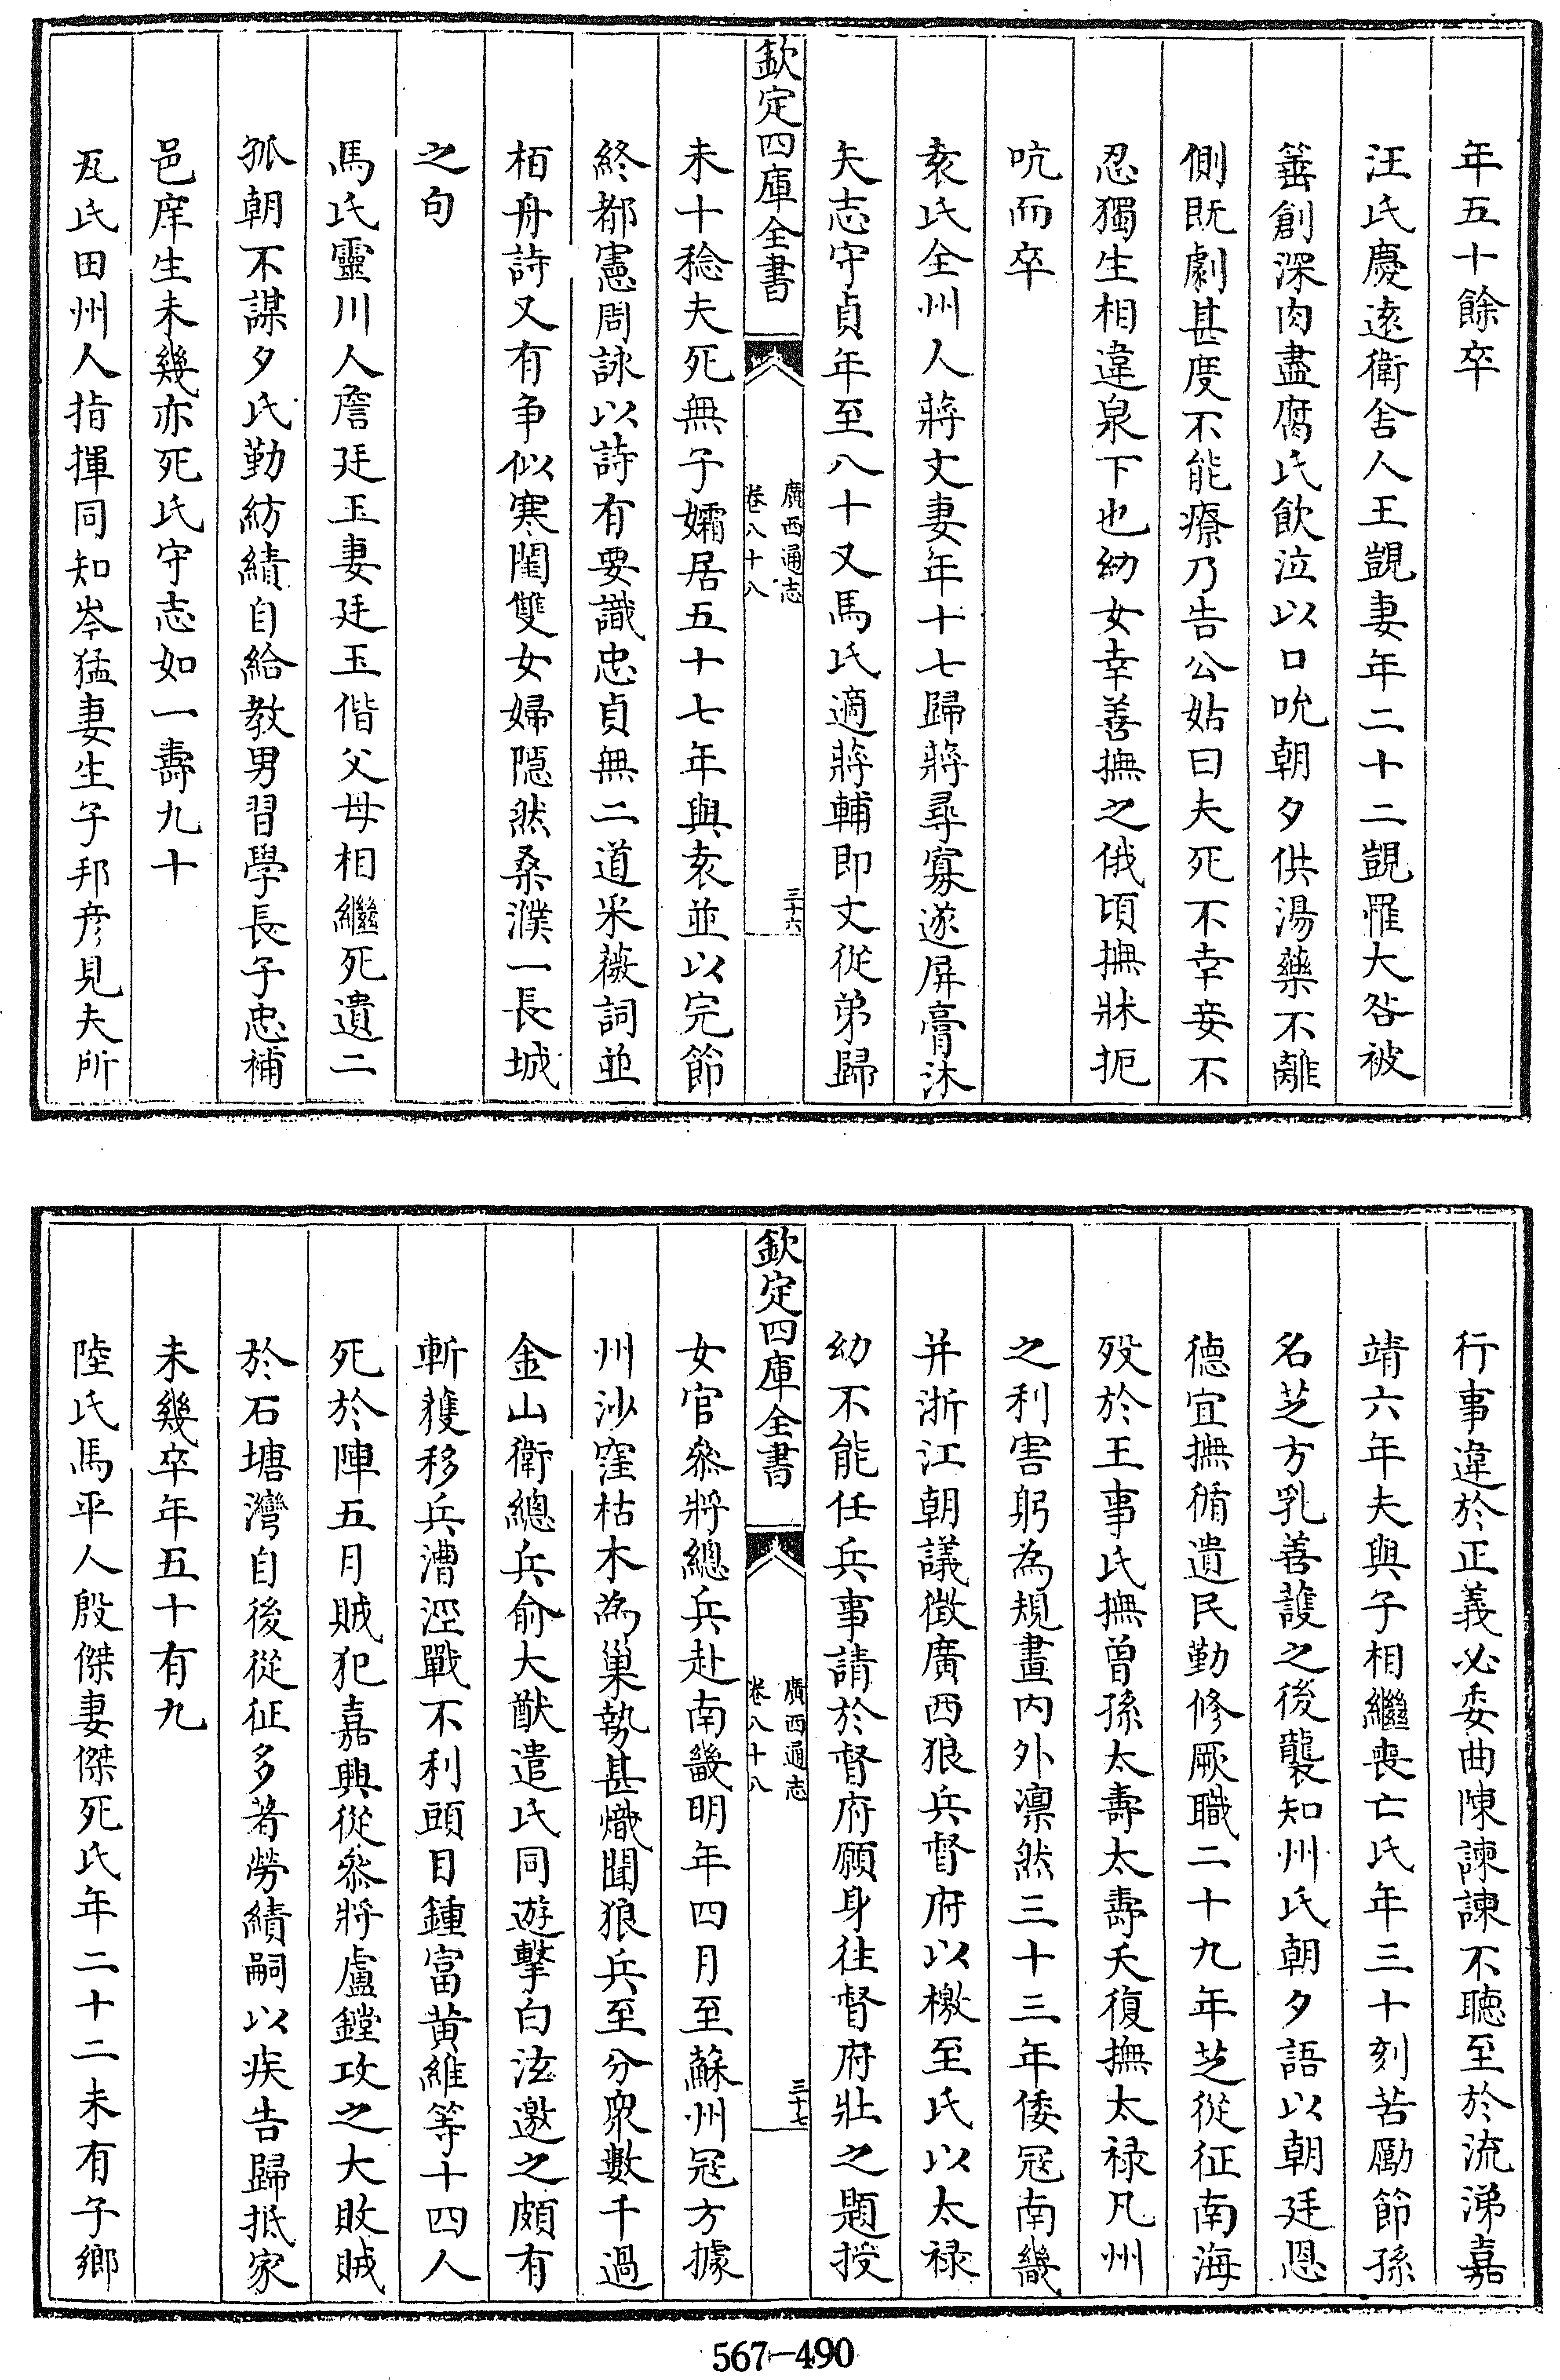 年五十餘卒
汪氏慶遠衛舍人王覬妻年二十二覬罹大咎被
箠創深肉盡腐氏飲泣以口吮朝夕供湯藥不離
側既劇甚度不能療乃告公姑曰夫死不幸妾不
忍獨生相違泉下也幼女幸善撫之俄頃撫牀扼
吭而卒
袁氏全州人蔣文妻年十七歸蔣尋寡遂屏膏沐
矢志守貞年至八十又馬氏適蔣輔即文從弟歸
欽定四庫全書
廣西通志
卷八十八
三十六
未十稔夫死無子孀居五十七年與袁並以完節
終都憲周詠以詩有要識忠貞無二道采薇詞並
栢舟詩又有爭似寒閨雙女婦隱然桑濮一長城
之句
馬氏靈川人詹廷玉妻廷玉偕父母相繼死遺二
孤朝不謀夕氏勤紡績自給教男習學長子忠補
邑庠生未幾亦死氏守志如一壽九十
瓦氏田州人指揮同知岑猛妻生子邦彦見夫所
行事違於正義必委曲陳諫諫不聽至於流涕嘉
靖六年夫與子相繼喪亡氏年三十刻苦勵節孫
名芝方乳善護之後襲知州氏朝夕語以朝廷恩
德宜撫循遺民勤修厥職二十九年芝從征南海
殁於王事氏撫曾孫太壽太壽夭復撫太禄凡州
之利害躬為規畫内外凛然三十三年倭寇南畿
并浙江朝議徵廣西狼兵督府以檄至氏以太禄
幼不能任兵事請於督府願身往督府壯之題授
欽定四庫全書
廣西通志
卷八十八
三十七
女官叅將總兵赴南畿明年四月至蘇州冦方據
州沙窪枯木為巢勢甚熾聞狼兵至分衆數千過
金山衛總兵俞大猷遣氏同遊擊白泫邀之頗有
斬獲移兵漕涇戰不利頭目鍾富黄維等十四人
死於陣五月賊犯嘉興從叅將盧鏜攻之大敗賊
於石塘灣自後從征多著勞績嗣以疾告歸抵家
未幾卒年五十有九
陸氏馬平人殷傑妻傑死氏年二十二未有子鄉
567-490